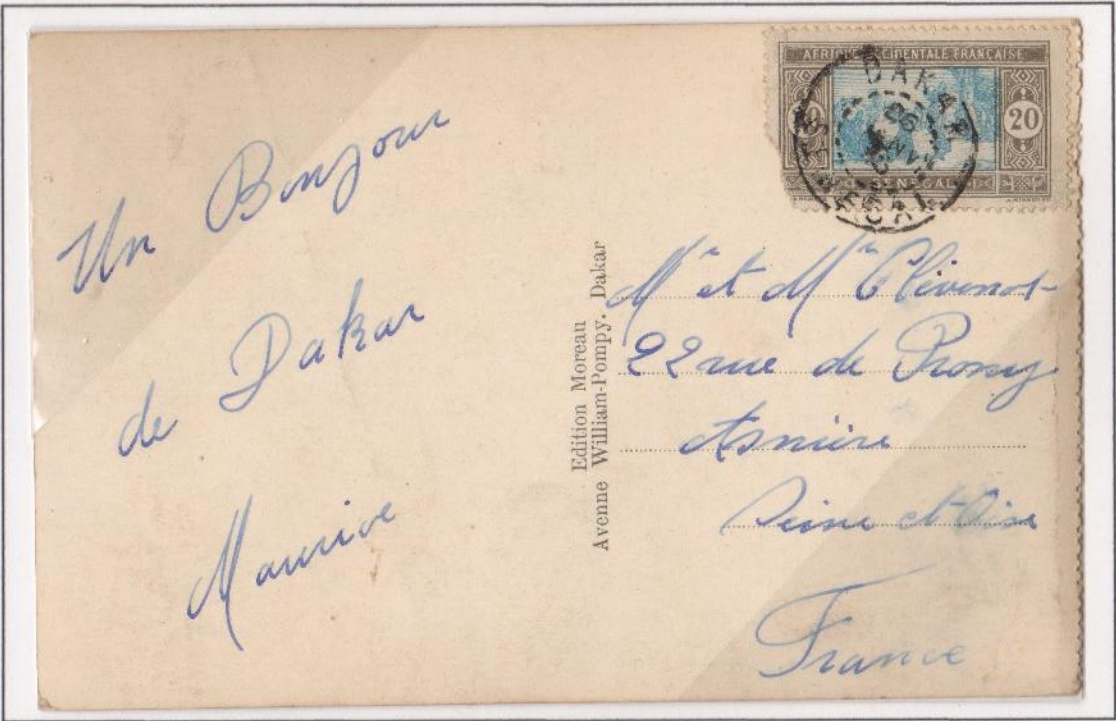 Un Bonjour
de Dakar
Maurice
Edition Moreau
Avenne William-Pompy. Dakar
AFRIQUE OCCIDENTALE FRANÇAISE
20 20
SÉNÉGAL
DAKAR
SÉNÉGAL
Mr et Mme Clévenot
22 rue de Prony
Asnière
Seine et Oise
France